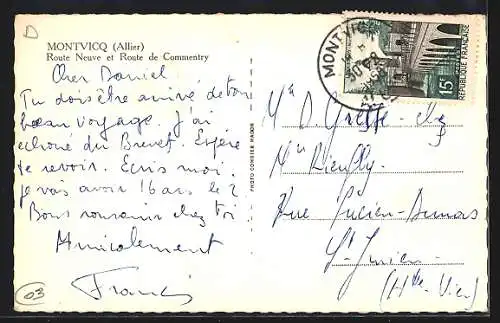 D
MONTVICQ (Allier)
Route Neuve et Route de Commentry
Cher Daniel
Tu dois être arrivé de ton
beau voyage. J'ai
échoué du Brevet. Espère
te revoir. Ecris moi.
je vais avoir 16 ans le 2
Bons souvenir chez toi
Amicalement
Francis
03
PHOTO COMBIER MACON
MONTVICQ
15F
REPUBLIQUE FRANÇAISE
Mr D. chez
Mr
Rue Lucien-Dumas
St Junien
(Hte-Vien)